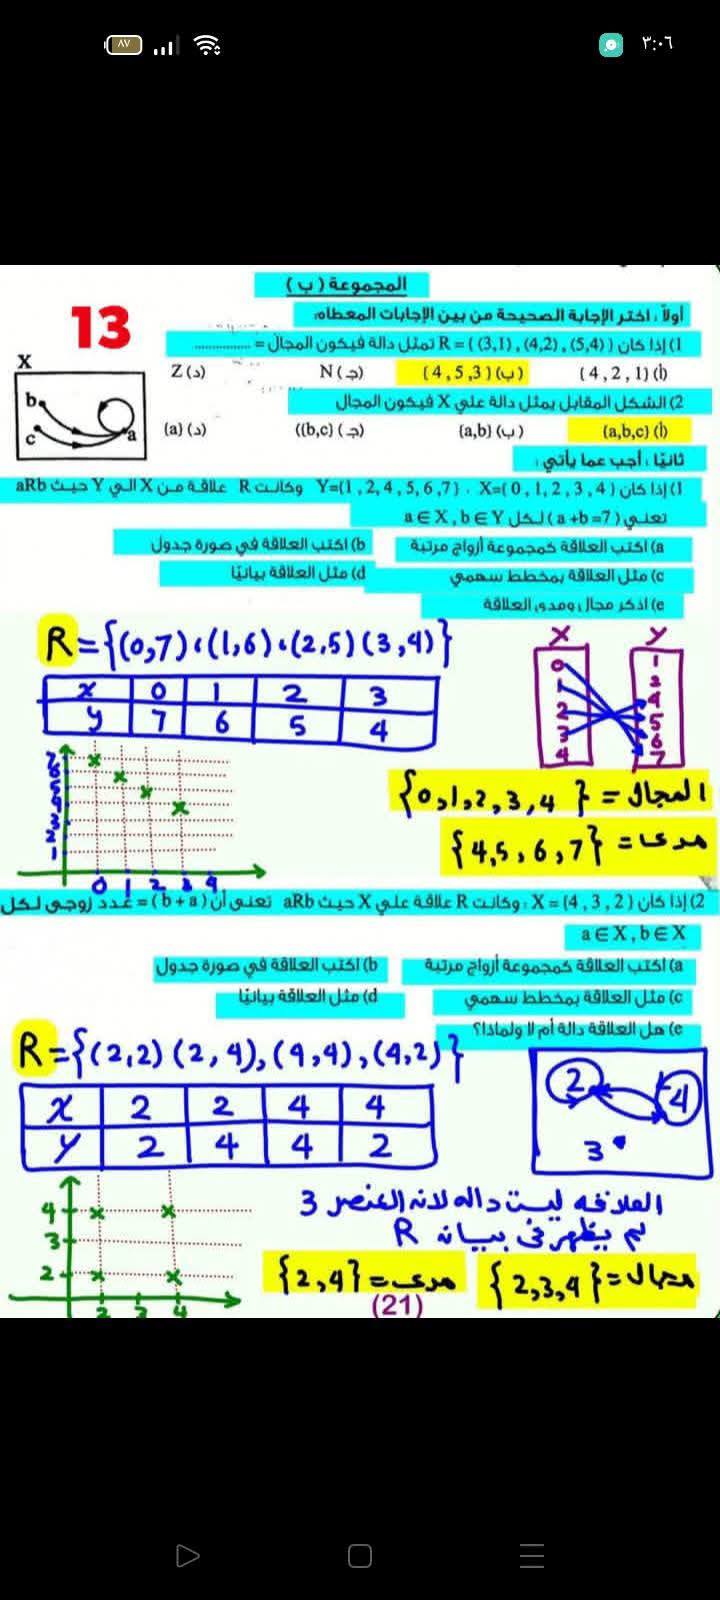 ٨٧
٣:٠٦
المجموعة (ب)
13
أولاً، اختر الإجابة الصحيحة من بين الإجابات المعطاه:
1) إذا كان R = {(3,1), (4,2), (5,4)} تمثل دالة فيكون المجال = ..............
(أ) {4, 2, 1} (ب) {4, 5, 3} (جـ) N (د) Z
2) الشكل المقابل يمثل دالة علي X فيكون المجال
(أ) {a,b,c} (ب) {a,b} (جـ) {(b,c)} (د) {a}
X
b
c
a
ثانيًا، أجب عما يأتي:
1) إذا كان X={0, 1, 2, 3, 4} ، Y={1, 2, 4, 5, 6, 7} وكانت R علاقة من X الي Y حيث aRb
تعني (a+b=7) لكل a∈X, b∈Y
a) اكتب العلاقة كمجموعة أزواج مرتبة b) اكتب العلاقة في صورة جدول
c) مثل العلاقة بمخطط سهمي d) مثل العلاقة بيانيًا
e) اذكر مجال ومدى العلاقة
R={(0,7)،(1,6)،(2,5)(3,4)}
x 0 1 2 3
y 7 6 5 4
X Y
0 1
1 2
2 4
3 5
4 6
7
7
6
5
4
3
2
1
0 1 2 3 4
المجال = {0,1,2,3,4}
مدى = {4,5,6,7}
2) إذا كان X={4, 3, 2} ، وكانت R علاقة علي X حيث aRb تعنى أن (b+a)= عدد زوجي لكل
a∈X, b∈X
a) اكتب العلاقة كمجموعة أزواج مرتبة b) اكتب العلاقة في صورة جدول
c) مثل العلاقة بمخطط سهمي d) مثل العلاقة بيانيًا
e) هل العلاقة دالة أم لا ولماذا؟
R={(2,2)(2,4),(4,4),(4,2)}
x 2 2 4 4
y 2 4 4 2
2 4
3
4
3
2
2 3 4
العلاقه ليست داله لانه العنصر 3
لم يظهر فى بيانه R
مجال = {2,3,4} مدى = {2,4}
(21)